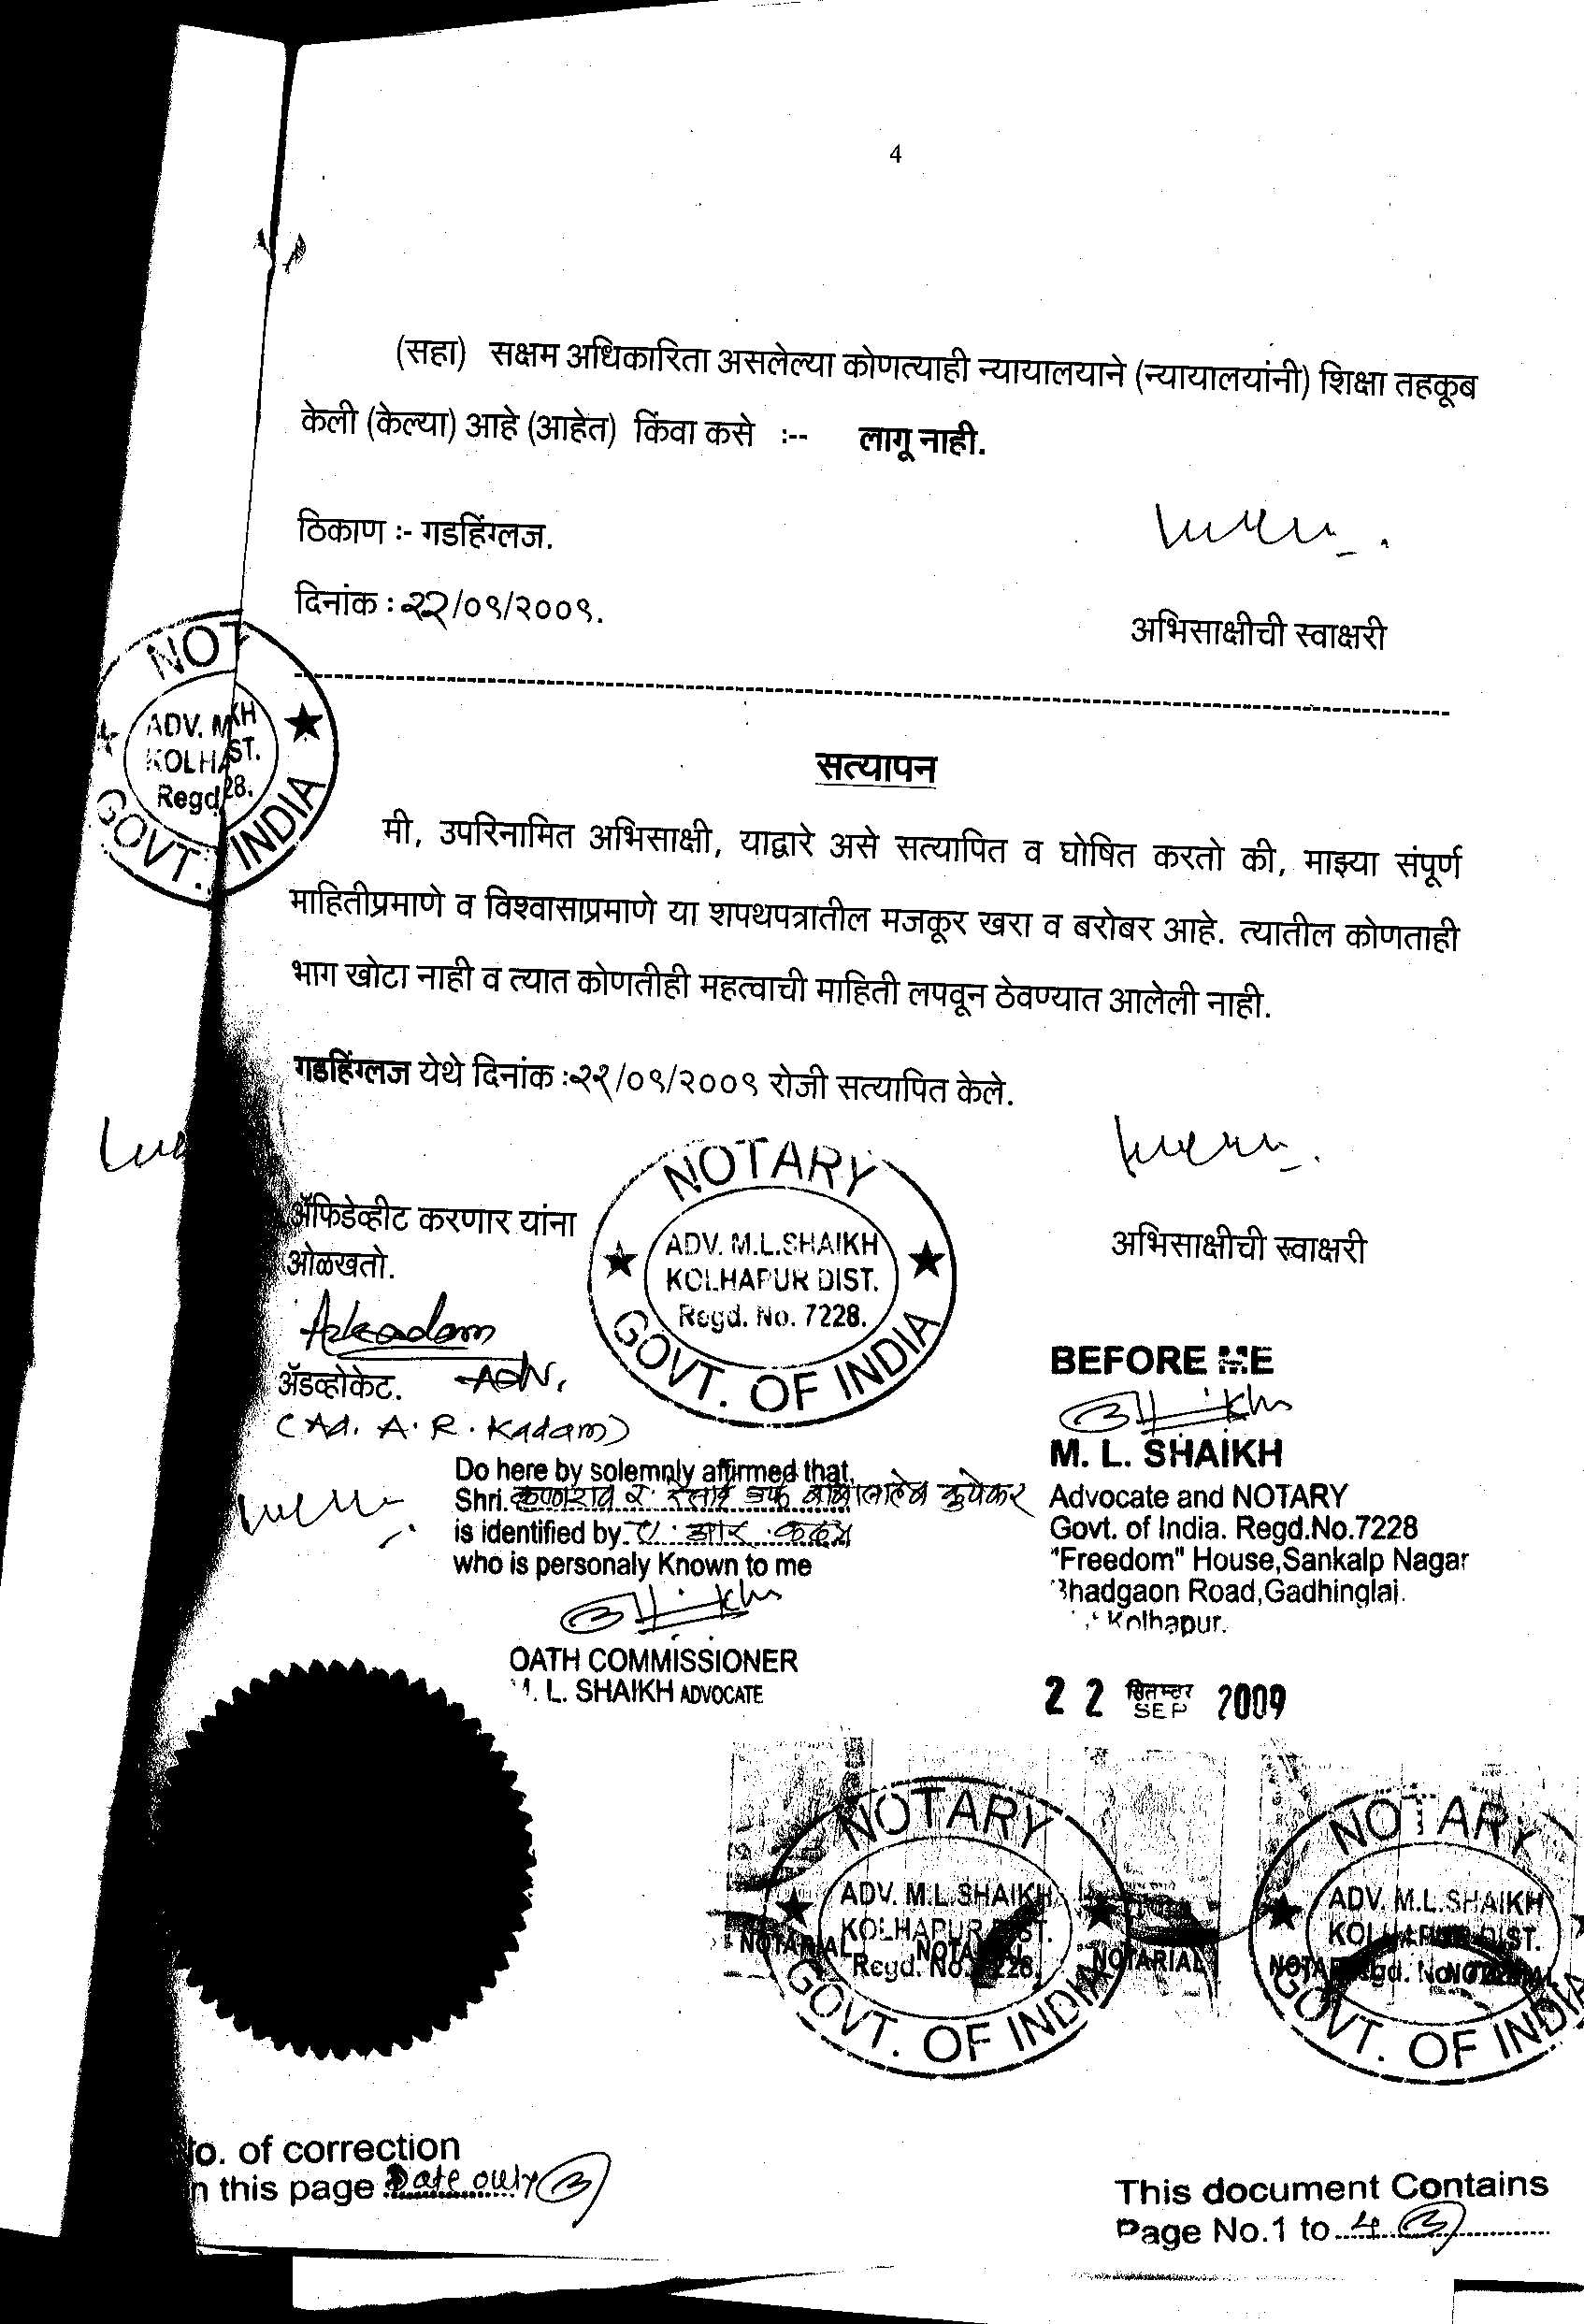 4
(सहा) सक्षम अधिकारिता असलेल्या कोणत्याही न्यायालयाने (न्यायालयांनी) शिक्षा तहकूब
केली (केल्या) आहे (आहेत) किंवा कसे :-- लागू नाही.
ठिकाण :- गडहिंग्लज.
दिनांक : २२/०९/२००९.
अभिसाक्षीची स्वाक्षरी
NOT
ADV. M KH
KOLHA ST.
Regd 28.
GOVT. INDIA
सत्यापन
मी, उपरिनामित अभिसाक्षी, याद्वारे असे सत्यापित व घोषित करतो की, माझ्या संपूर्ण
माहितीप्रमाणे व विश्वासाप्रमाणे या शपथपत्रातील मजकूर खरा व बरोबर आहे. त्यातील कोणताही
भाग खोटा नाही व त्यात कोणतीही महत्वाची माहिती लपवून ठेवण्यात आलेली नाही.
गडहिंग्लज येथे दिनांक :२२/०९/२००९ रोजी सत्यापित केले.
NOTARY
ADV. M.L.SHAIKH
KOLHAPUR DIST.
Regd. No. 7228.
GOVT. OF INDIA
ॲफिडेव्हीट करणार यांना
ओळखतो.
अभिसाक्षीची स्वाक्षरी
Arkadam
ॲडव्होकेट. Adv.
(Ad. A. R. Kadam)
BEFORE ME
M. L. SHAIKH
Advocate and NOTARY
Govt. of India. Regd.No.7228
"Freedom" House,Sankalp Nagar
Bhadgaon Road,Gadhinglaj.
Kolhapur.
Do here by solemnly affirmed that,
Shri. कुपेकर
is identified by ए. आर. कदम
who is personaly Known to me
OATH COMMISSIONER
M. L. SHAIKH ADVOCATE
22 सितम्बर SEP 2009
NOTARY
ADV. M.L.SHAIKH
KOLHAPUR DIST.
Regd. No. 7228.
GOVT. OF INDIA
NOTARIAL NOTARIAL NOTARIAL
NOTARY
ADV. M.L.SHAIKH
KOLHAPUR DIST.
GOVT. OF INDIA
o. of correction
n this page Date only
This document Contains
Page No.1 to 4